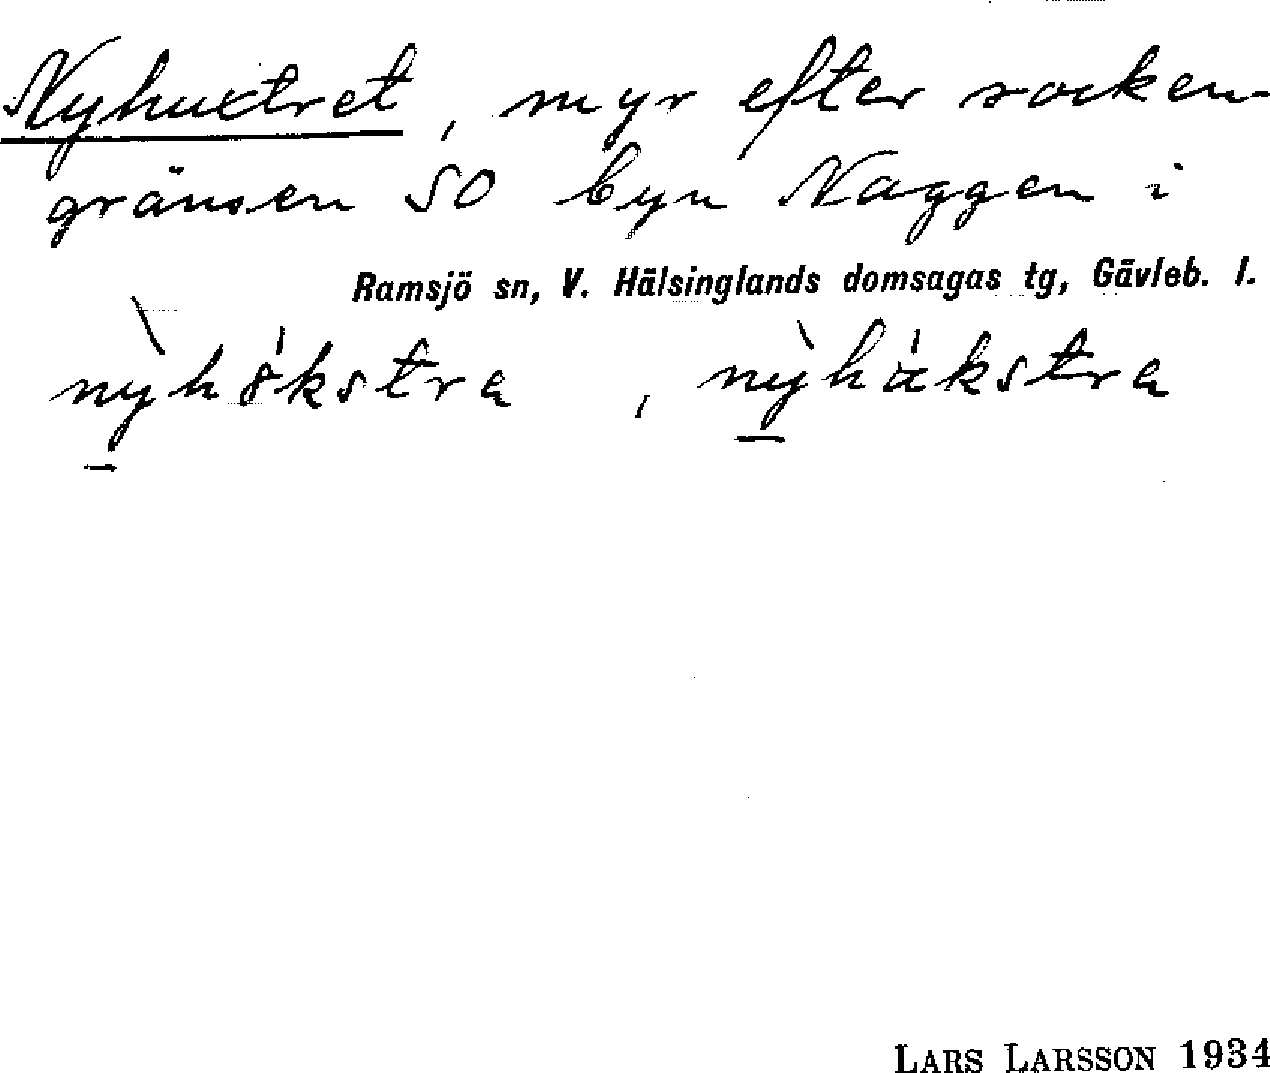 Nyhuxtret, myr efter socken-
gränsen SO byn Naggen i
Ramsjö sn, V. Hälsinglands domsagas tg, Gävleb. l.
nỳhö́kstra, nỳhä́kstra
LARS LARSSON 1934